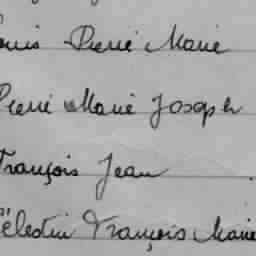 Louis Pierre Marie
Pierre Marie Joseph
François Jean
Célestin François Marie